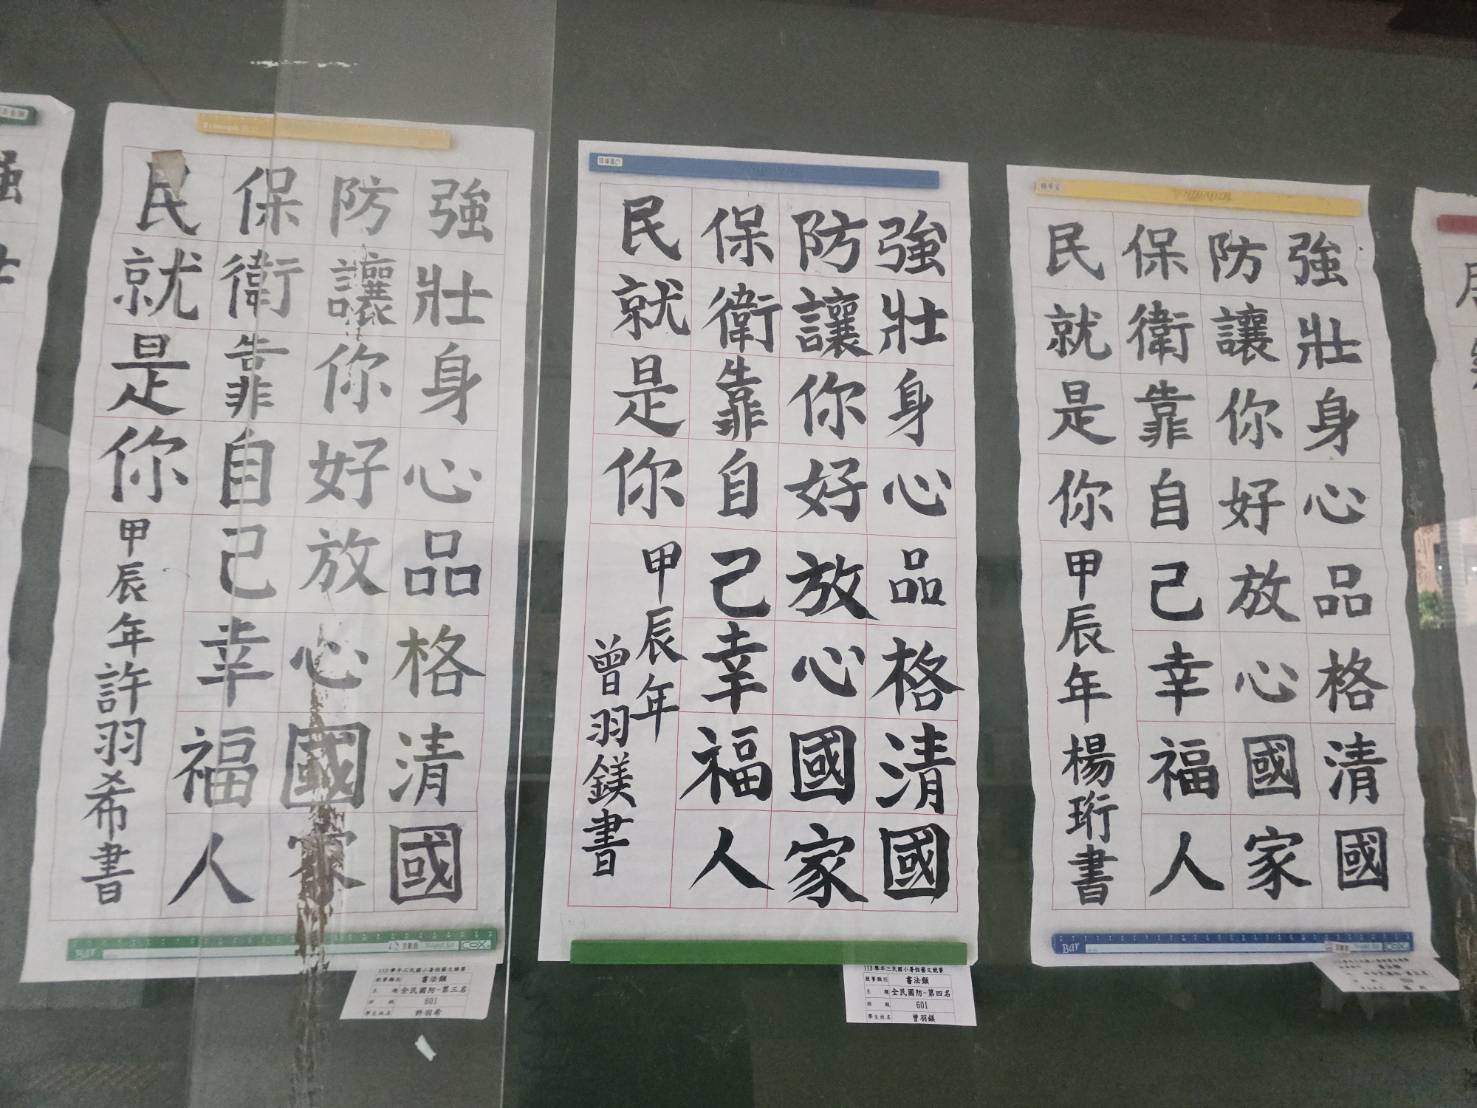 強壯身心品格清國
防讓你好放心國家
保衛靠自己幸福人
民就是你
甲辰年許羽希書
書法類
全民國防-第三名
601
學生姓名 許羽希
強壯身心品格清國
防讓你好放心國家
保衛靠自己幸福人
民就是你
甲辰年
曾羽鎂書
書法類
全民國防-第四名
601
學生姓名 曾羽鎂
強壯身心品格清國
防讓你好放心國家
保衛靠自己幸福人
民就是你
甲辰年楊珩書